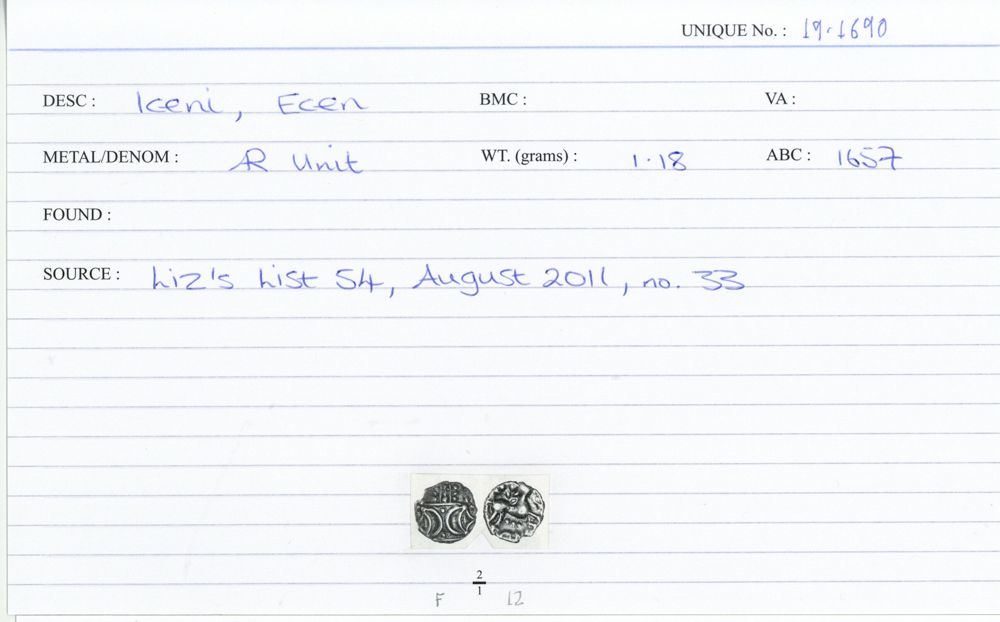 UNIQUE No. : 19.1690
DESC : Iceni, Ecen BMC : VA :
METAL/DENOM : AR Unit WT. (grams) : 1.18 ABC : 1657
FOUND :
SOURCE : Liz's List 54, August 2011, no. 33
2
1
F 12